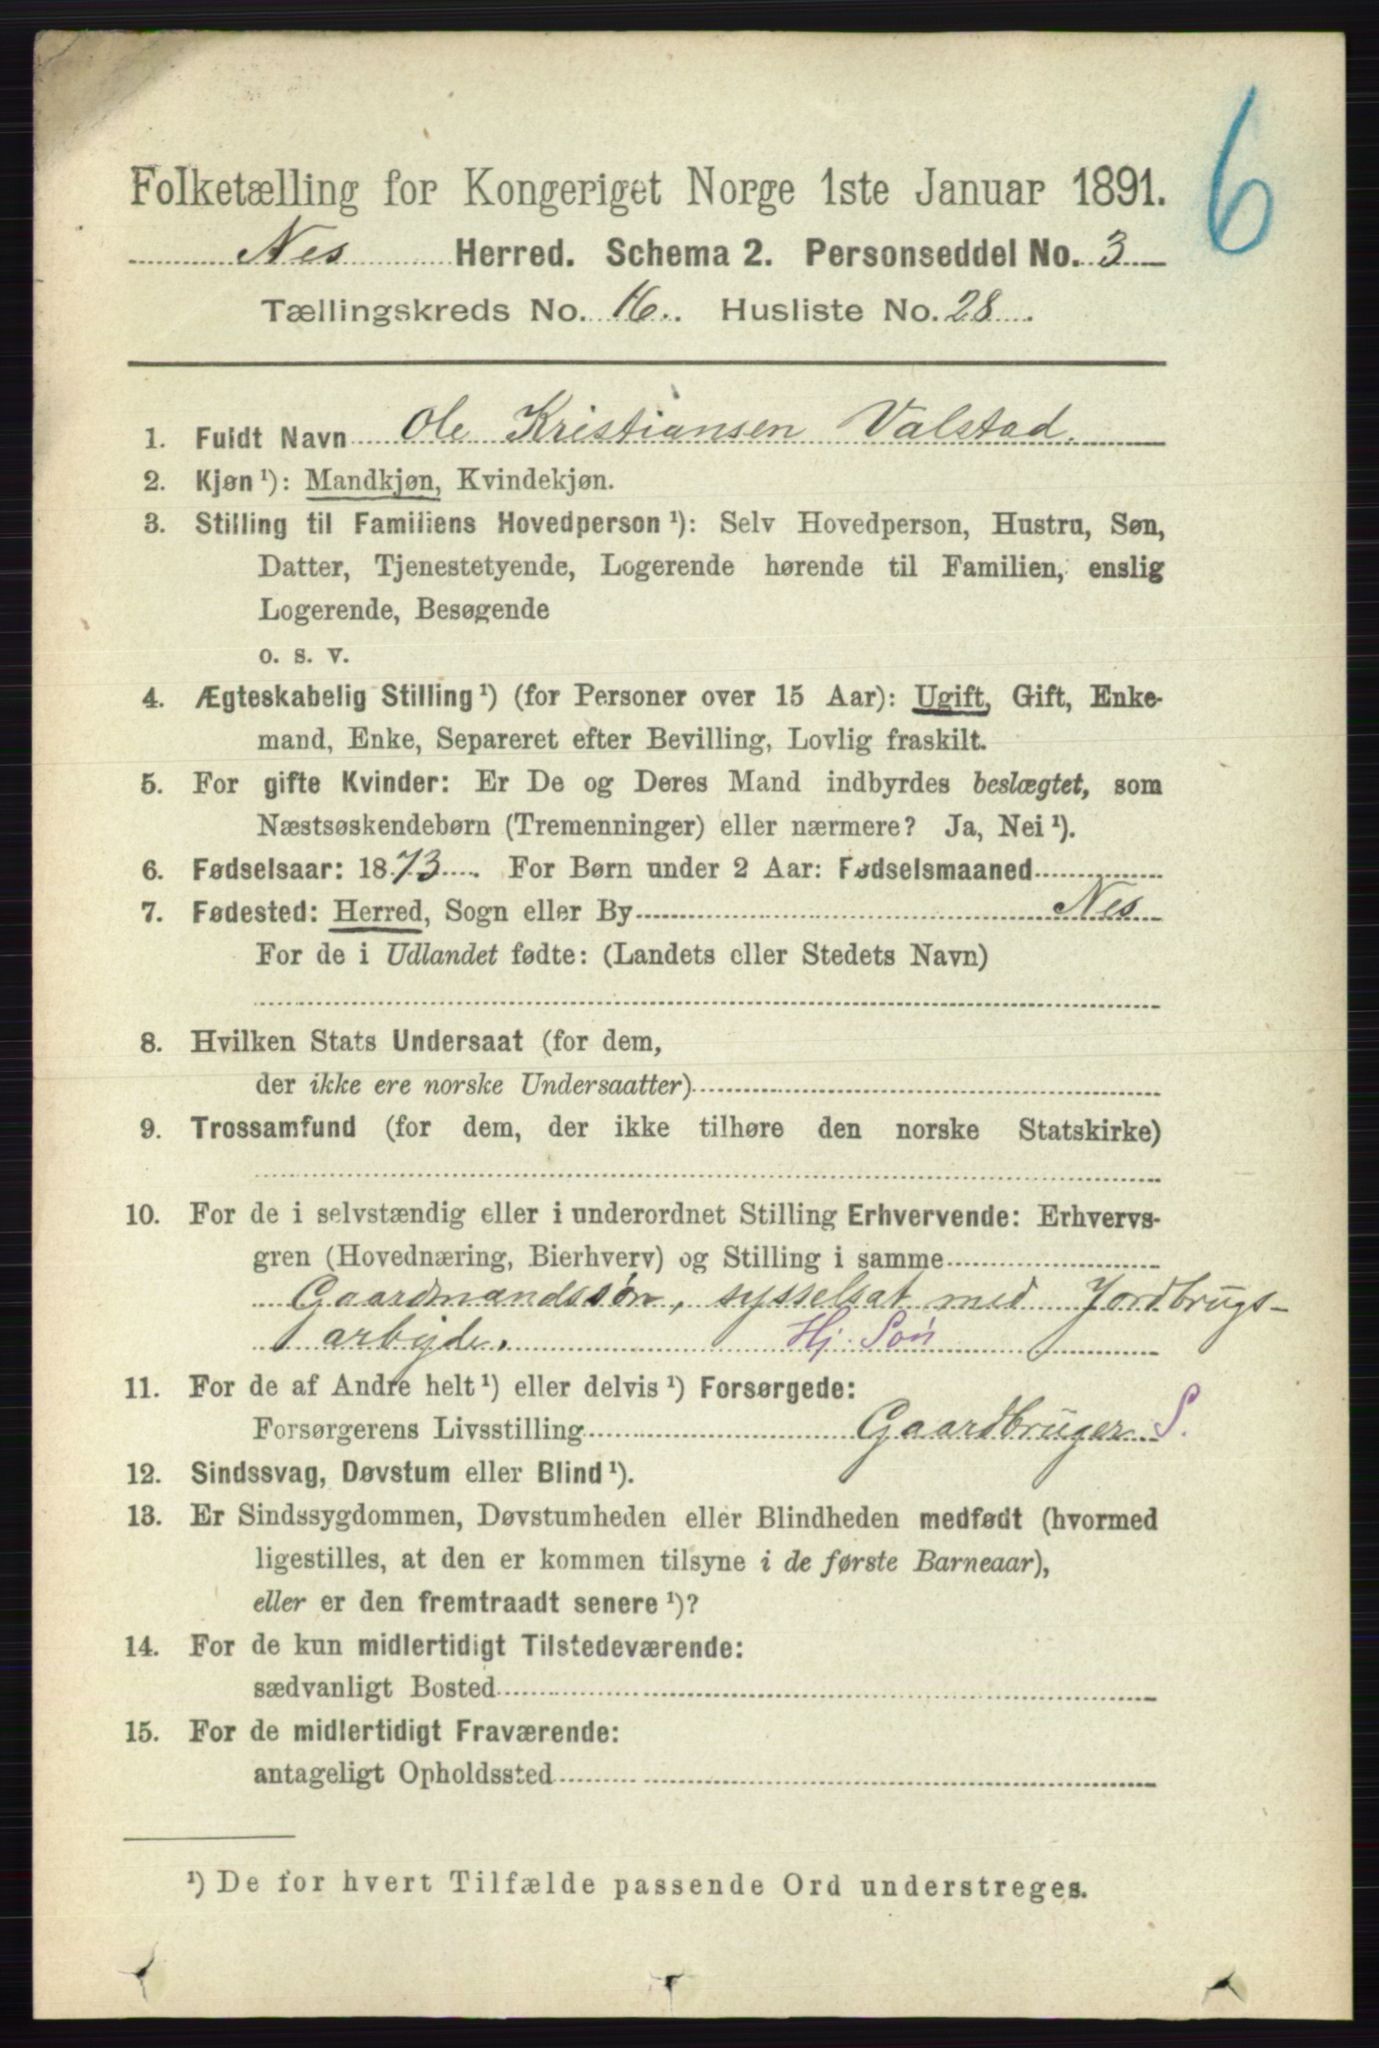 6
Folketælling for Kongeriget Norge 1ste Januar 1891.
Nes Herred. Schema 2. Personseddel No. 3
Tællingskreds No. 16. Husliste No. 28
1. Fuldt Navn Ole Kristiansen Valstad.
2. Kjøn ¹): Mandkjøn, Kvindekjøn.
3. Stilling til Familiens Hovedperson ¹): Selv Hovedperson, Hustru, Søn,
Datter, Tjenestetyende, Logerende hørende til Familien, enslig
Logerende, Besøgende
o. s. v.
4. Ægteskabelig Stilling ¹) (for Personer over 15 Aar): Ugift, Gift, Enke-
mand, Enke, Separeret efter Bevilling, Lovlig fraskilt.
5. For gifte Kvinder: Er De og Deres Mand indbyrdes beslægtet, som
Næstsøskendebørn (Tremenninger) eller nærmere? Ja, Nei ¹).
6. Fødselsaar: 1873. For Børn under 2 Aar: Fødselsmaaned
7. Fødested: Herred, Sogn eller By Nes
For de i Udlandet fødte: (Landets eller Stedets Navn)
8. Hvilken Stats Undersaat (for dem,
der ikke ere norske Undersaatter)
9. Trossamfund (for dem, der ikke tilhøre den norske Statskirke)
10. For de i selvstændig eller i underordnet Stilling Erhvervende: Erhvervs-
gren (Hovednæring, Bierhverv) og Stilling i samme
Gaardmandssøn, sysselsat med Jordbrugs-
arbejde. Hj. Søn
11. For de af Andre helt ¹) eller delvis ¹) Forsørgede:
Forsørgerens Livsstilling Gaardbruger S.
12. Sindssvag, Døvstum eller Blind ¹).
13. Er Sindssygdommen, Døvstumheden eller Blindheden medfødt (hvormed
ligestilles, at den er kommen tilsyne i de første Barneaar),
eller er den fremtraadt senere ¹)?
14. For de kun midlertidigt Tilstedeværende:
sædvanligt Bosted
15. For de midlertidigt Fraværende:
antageligt Opholdssted
¹) De for hvert Tilfælde passende Ord understreges.